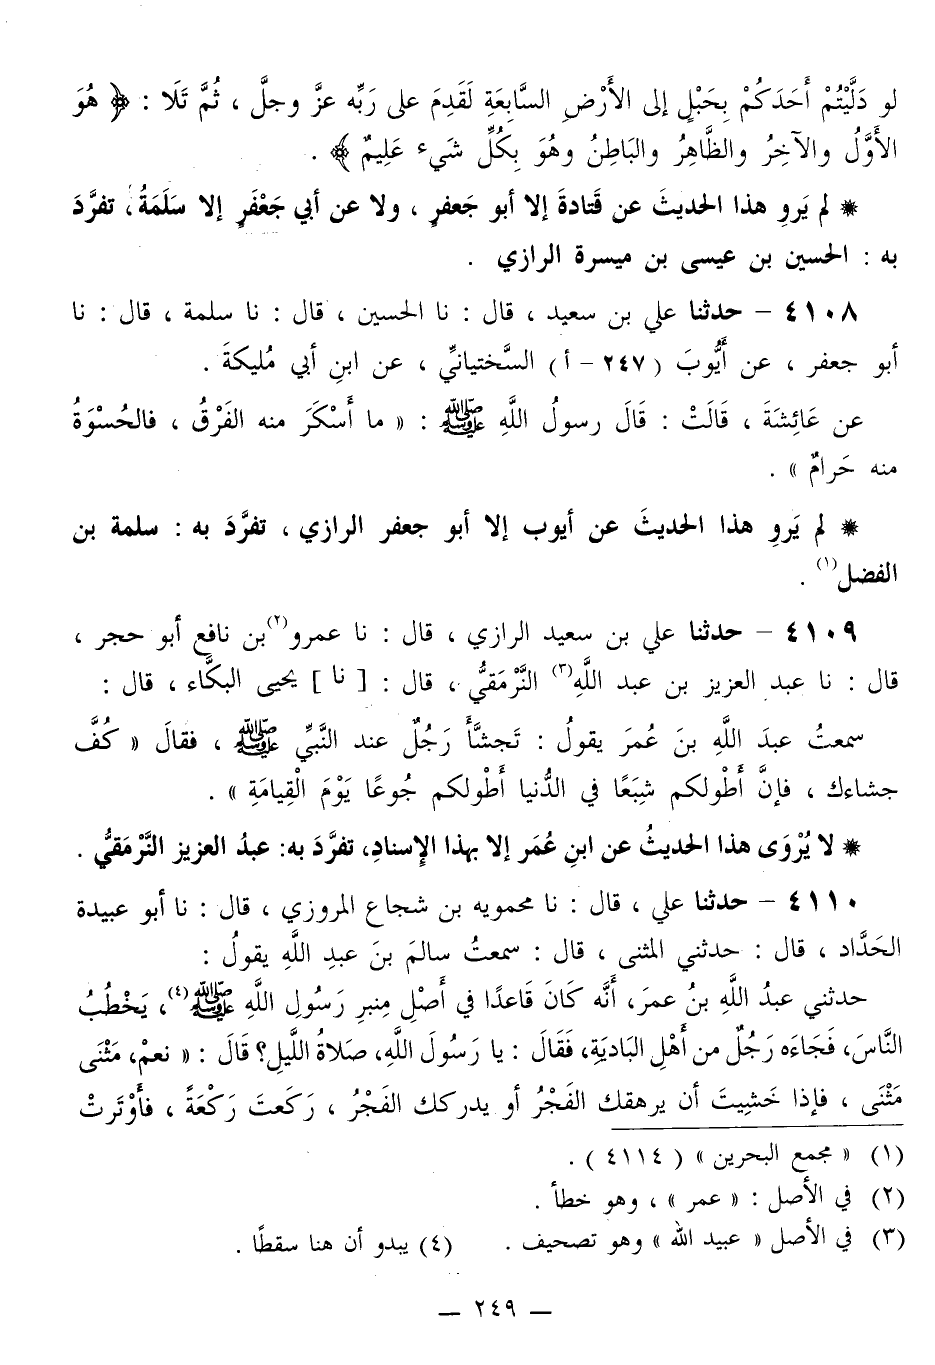 لو دَلَّيْتُمْ أَحَدَكُمْ بِحَبْلٍ إلى الأَرْضِ السَّابِعَةِ لَقَدِمَ على رَبِّه عزَّ وجلَّ ، ثُمَّ تَلَا : ﴿ هُوَ
الأَوَّلُ والآخِرُ والظَّاهِرُ والبَاطِنُ وهُوَ بِكُلِّ شَيء عَلِيمٌ ﴾ .
* لم يَروِ هذا الحديثَ عن قَتادةَ إلا أبو جَعفرٍ ، ولا عن أبي جَعْفَرٍ إلا سَلَمَةُ ، تفرَّدَ
به : الحسين بن عيسى بن ميسرة الرازي .
٤١٠٨ – حدثنا علي بن سعيد ، قال : نا الحسين ، قال : نا سلمة ، قال : نا
أبو جعفر ، عن أَيُّوبَ ( ٢٤٧ – أ ) السَّختيانيِّ ، عن ابنِ أبي مُليكةَ .
عن عَائِشةَ ، قَالَتْ : قَالَ رسولُ اللَّهِ ﷺ : « ما أَسْكَرَ منه الفَرْقُ ، فالحُسْوَةُ
منه حَرامٌ » .
* لم يَروِ هذا الحديثَ عن أيوب إلا أبو جعفر الرازي ، تفرَّدَ به : سلمة بن
الفضل(١) .
٤١٠٩ – حدثنا علي بن سعيد الرازي ، قال : نا عمرو(٢)بن نافع أبو حجر ،
قال : نا عبد العزيز بن عبد اللَّهِ(٣) النَّرْمَقيُّ ، قال : [ نا ] يحيى البكَّاء ، قال :
سمعتُ عبدَ اللَّهِ بنَ عُمرَ يقولُ : تَجشَّأَ رَجُلٌ عند النَّبيِّ ﷺ ، فقالَ « كُفَّ
جشاءك ، فإنَّ أَطْولكم شِبَعًا في الدُّنيا أَطْولكم جُوعًا يَوْمَ الْقِيامَةِ » .
* لا يُرْوَى هذا الحديثُ عن ابنِ عُمَر إلا بهذا الإسنادِ، تفرَّدَ به: عبدُ العزيز النَّرْمَقيُّ .
٤١١٠ – حدثنا علي ، قال : نا محمويه بن شجاع المروزي ، قال : نا أبو عبيدة
الحَدَّاد ، قال : حدثني المثنى ، قال : سمعتُ سالمَ بنَ عبدِ اللَّهِ يقولُ :
حدثني عبدُ اللَّهِ بنُ عمرَ، أَنَّه كَانَ قَاعدًا في أَصْلِ مِنبرِ رَسُولِ اللَّهِ ﷺ(٤)، يَخْطُبُ
النَّاسَ، فَجَاءَه رَجُلٌ من أَهْلِ البَاديَةِ، فَقَالَ : يا رَسُولَ اللَّهِ، صَلاةُ اللَّيلِ؟ قالَ : « نعمْ، مَثْنَى
مَثْنَى ، فإذا خَشِيتَ أن يرهقك الفَجْرُ أو يدركك الفَجْرُ ، رَكَعتَ رَكْعَةً ، فأَوْتَرتْ
(١) « مجمع البحرين » ( ٤١١٤ ) .
(٢) في الأصل : « عمر » ، وهو خطأ .
(٣) في الأصل « عبيد الله » وهو تصحيف . (٤) يبدو أن هنا سقطًا .
– ٢٤٩ –